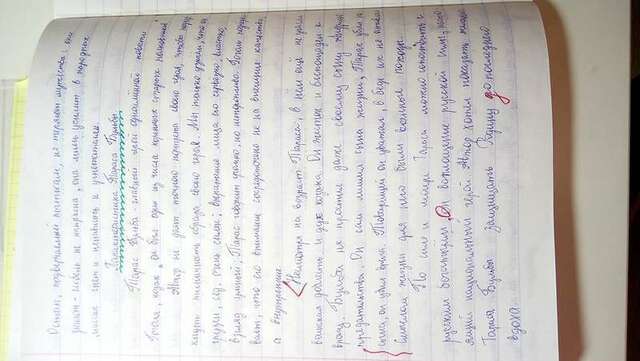 Остап, подвергаемый пыткам, не теряет мужества и они
знают - гибель не напрасна, она лишь усилит в народных
массах гнев и ненависть к угнетателям.
Характеристика Тараса Бульбы
Тарас Бульба - главный герой одноименной повести
Гоголя, козак, "он был один из числа коренных старых полковников"
Автор не дает точного портрета своего героя, чтобы
типичность образа своего героя. Мы только узнаем, что он
грузен, сед, очень силен; выражение лица его сурово, властно,
взгляд умный; Тарас говорит громко, но неторопливо. Гоголь
что его внимание сосредоточено не на внешних качествах,
а внутренние.
Несмотря на возраст Тараса, в нем ещё не
воинская доблесть и дух козака. Он жесток и беспощаден к
врагу. Бульба не простил даже своему сыну Андрию
предательства. Он сам лишил сына жизни, Тарас убил не
сына, он убил врага. Товарищей он уважал, в беде их не
Смыслом жизни для него были военные походы.
По силе и мощи Тараса можно сопоставить с
русским богатырем. Он воплощение русской силы,
национальный герой. Автор хотел показать
Тараса Бульбы защищать Родину до последнего
вдоха